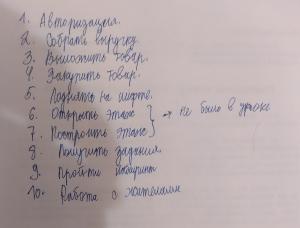 1. Авторизация.
2. Собрать выручку
3. Выложить товар.
4. Закупить товар.
5. Поднять на лифте.
6. Открыть этаж
7. Построить этаж } → не было в уроке
8. Получить задания
9. Пройти лабиринт
10. Работа с жителями